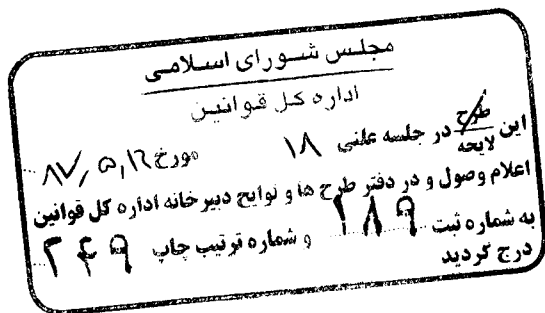 مجلس شورای اسلامی
اداره کل قوانین
این طرح/لایحه در جلسه علنی ۱۸ مورخ ۸۷/۵/۱۲
اعلام وصول و در دفتر طرح ها و لوایح دبیرخانه اداره کل قوانین
به شماره ثبت ۱۸۹ و شماره ترتیب چاپ ۳۴۹
درج گردید